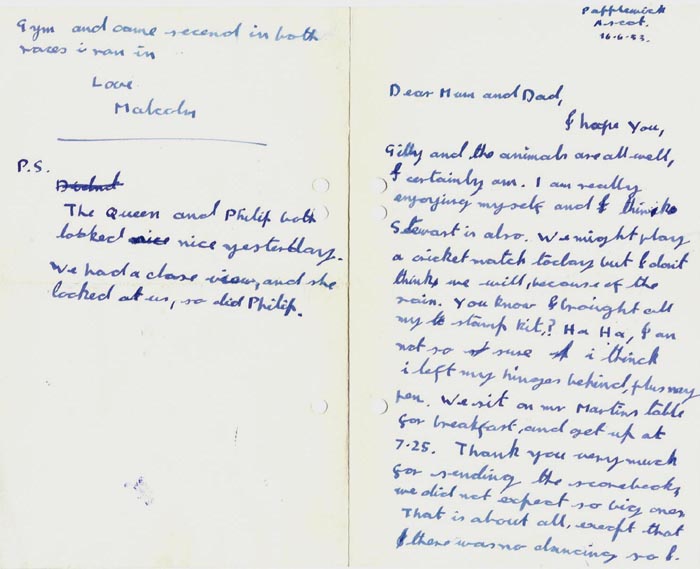 Papplewick
Ascot.
16-6-53.
Dear Mum and Dad,
I hope You,
Gilly and the animals are all well,
I certainly am. I am really
enjoying myself and I think
Stewart is also. We might play
a cricket match today but I don't
think we will, because of the
rain. You know I brought all
my stamp kit,? Ha Ha, I am
not so sure i thinck
i left my hinges behind, plus may
pen. We sit on mr Martins table
for breakfast, and get up at
7-25. Thank you very much
for sending the scorebooks,
we did not expect so big ones.
That is about all, except that
there was no dancing so I
Gym and came secend in both
races i ran in
Love
Malcolm
P.S.
Didnt
The Queen and Philip both
looked nice nice yesterday.
We had a close view, and she
looked at us, so did Philip.